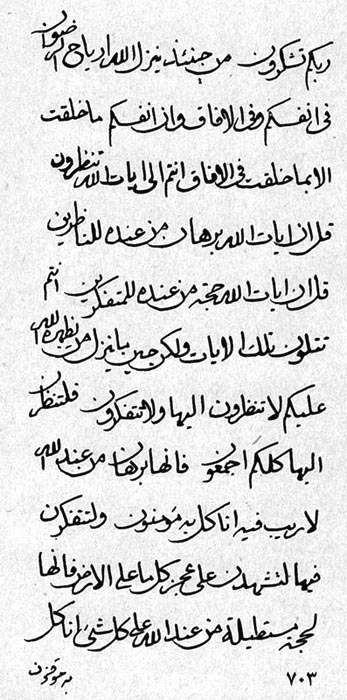 ربكم تشكرون من حينئذ ينزل الله ارياح الرضوان
في انفسكم وفي الافاق وان انفسكم ما خلقت
الا بما خلقت في الافاق انتم الى ايات الله تنظرون
قل ان ايات الله برهان من عنده للناظرين
قل ان ايات الله حجة من عنده للمتفكرين انتم
تتلون تلك الايات ولكن حين ما ينزل من يظهره الله
عليكم لا تنظرون اليها ولا تتفكرون فلتنظرن
اليها كلكم اجمعون فانها برهان من عند الله
لا ريب فيه انا كل به مؤمنون ولتتفكرن
فيها لتشهدن على عجز كل ما على الارض فانها
لحجة مستطيلة من عند الله على كل شيء انا كل
به موقنون
٧٠٣